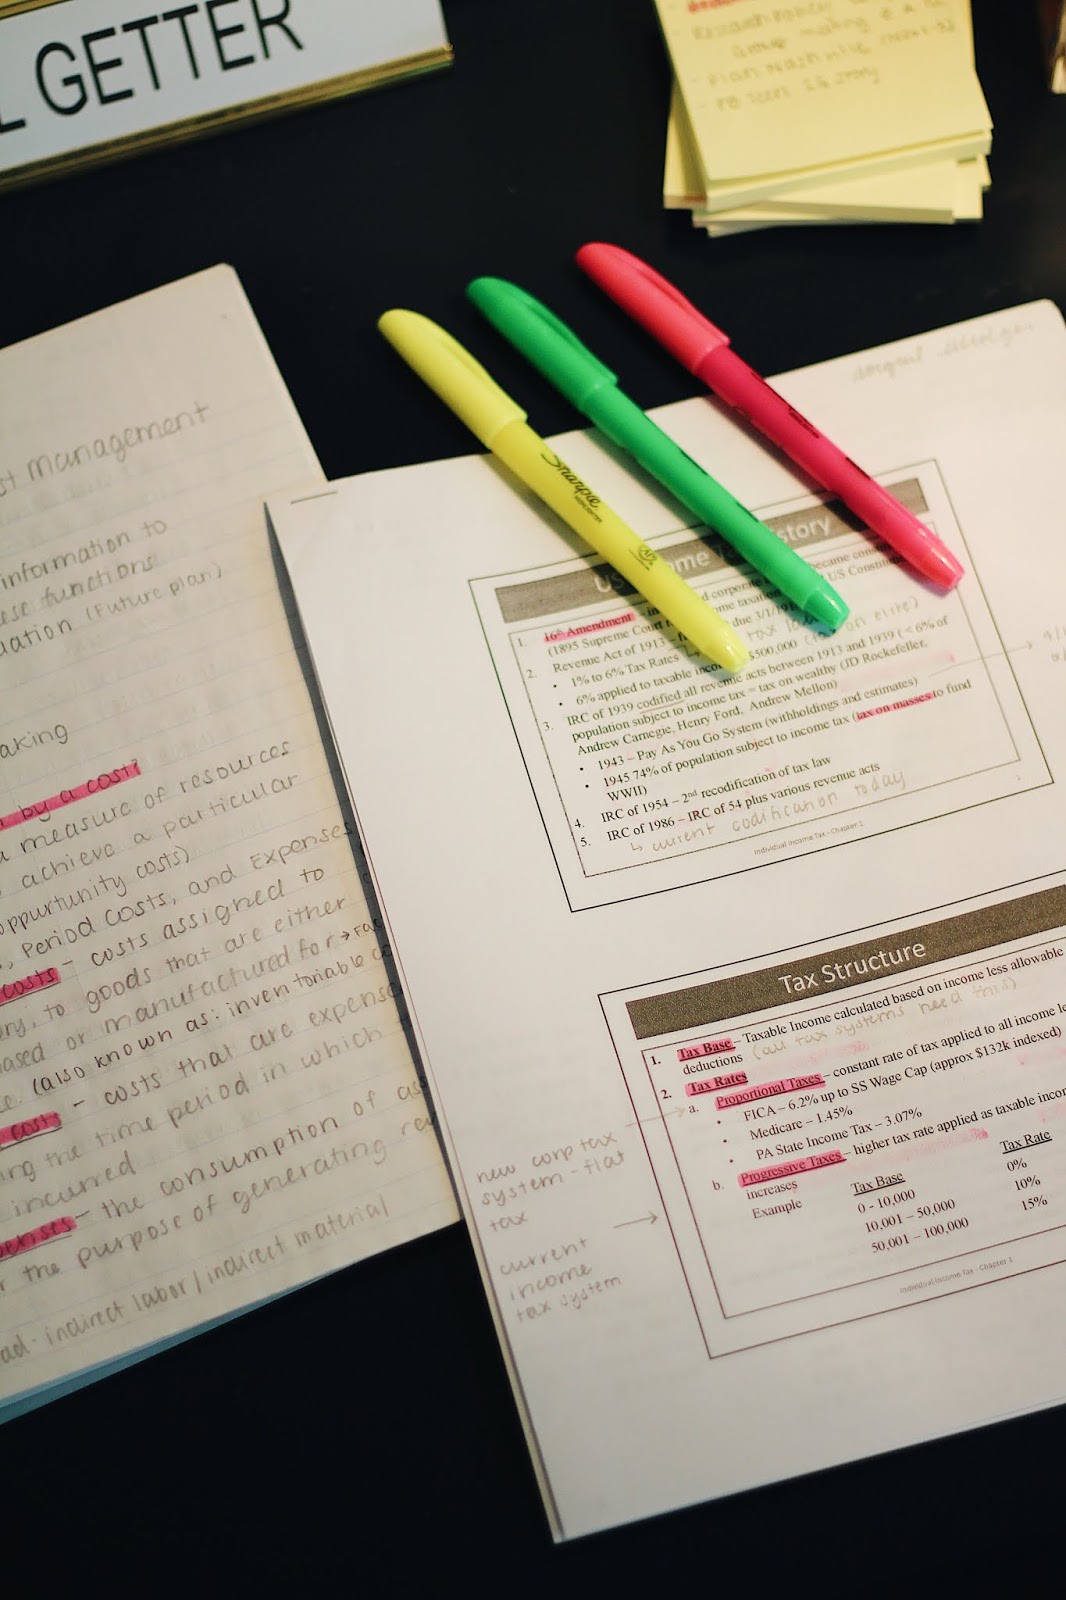 L GETTER
making
Plan Nashville
st management
information to
these functions
uation (Future plan)
aking
by a cost?
a measure of resources
achieve a particular
oppurtunity costs)
, Period Costs, and Expenses
costs - costs assigned to
ory, to goods that are either
ased or manufactured for →
(also known as: inventoriable
costs - costs that are expense
ing the time period in which
incurred
penses - the consumption of
the purpose of generating
ad: indirect labor / indirect material
Sharpie
US
ome
story
1. 16th Amendment
corporate
became
(1895 Supreme Court
ome taxation
US
2. Revenue Act of 1913 –
due 3/1/
• 1% to 6% Tax Rates
tax
• 6% applied to taxable
$500,000
on elite)
3. IRC of 1939 codified all revenue acts between 1913 and 1939 ( < 6% of
population subject to income tax = tax on wealthy (JD Rockefeller,
Andrew Carnegie, Henry Ford, Andrew Mellon)
• 1943 – Pay As You Go System (withholdings and estimates)
• 1945 74% of population subject to income tax (tax on masses to fund
WWII)
4. IRC of 1954 – 2nd recodification of tax law
5. IRC of 1986 – IRC of 54 plus various revenue acts
↳ current codification today
Individual Income Tax - Chapter 1
Tax Structure
1. Tax Base – Taxable Income calculated based on income less allowable
deductions (all tax systems need this)
2. Tax Rates
a. Proportional Taxes – constant rate of tax applied to all income
• FICA – 6.2% up to SS Wage Cap (approx $132k indexed)
• Medicare – 1.45%
• PA State Income Tax – 3.07%
b. Progressive Taxes – higher tax rate applied as taxable
increases
Example Tax Base Tax Rate
0 - 10,000 0%
10,001 – 50,000 10%
50,001 – 100,000 15%
Individual Income Tax - Chapter 1
new corp tax
system - flat
tax
current
income
tax system